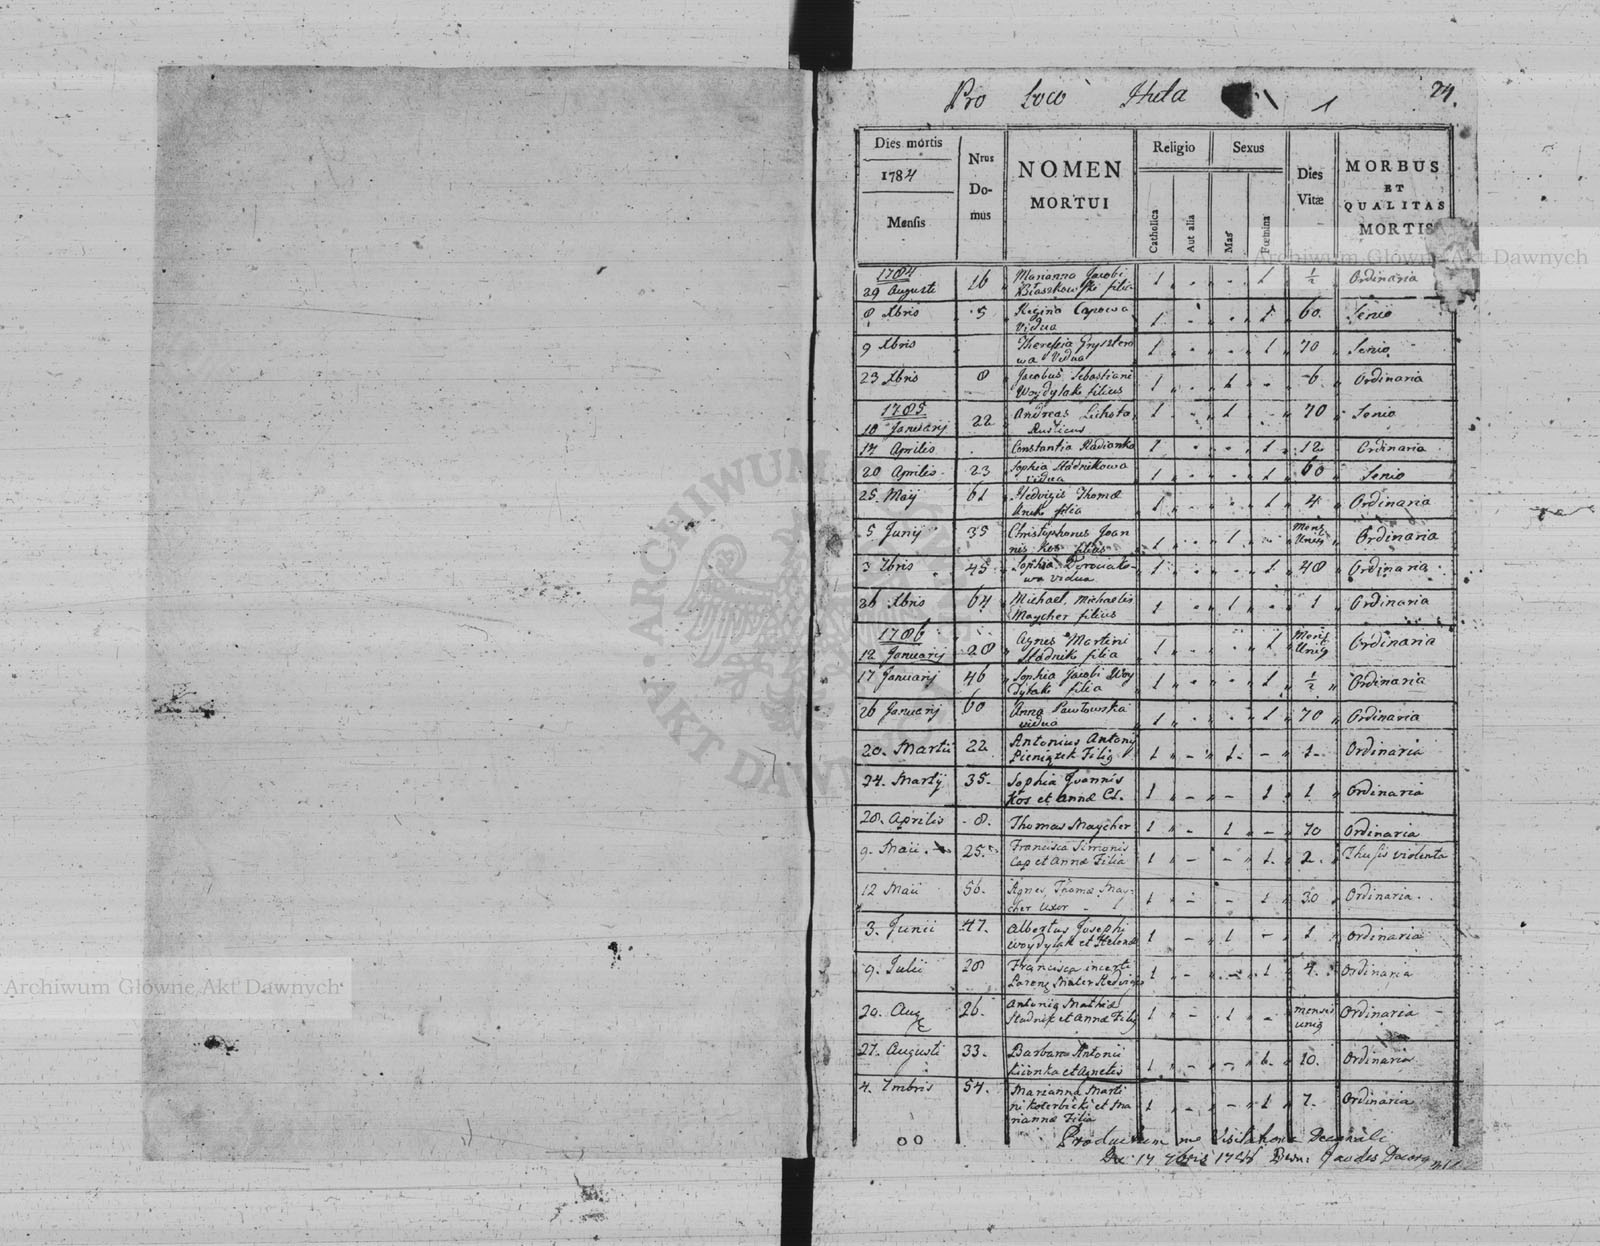 Pro Loco Huta 1 24.
Dies mortis
1784
Mensis
Nrus
Do-
mus
NOMEN
MORTUI
Religio
Catholica
Aut alia
Sexus
Mas
Fœmina
Dies
Vitæ
MORBUS
ET
QUALITAS
MORTIS
1784
29 Augusti 16 Marianna Jacobi 1 1 1/2 Ordinaria
Błaszkowski filia
8 Xbris 5 Regina Capowa 1 1 60 Senio
Vidua
9 Xbris Theressia Grysztero 1 1 70 Senio
wa Vidua
23 Xbris 8 Jacobus Sebastiani 1 1 6 Ordinaria
Woydylak filius
1785
10 Januarij 22 Andreas Lichota 1 1 70 Senio
Rusticus
17 Aprilis Constantia Radianka 1 1 12 Ordinaria
20 Aprilis 23 Sophia Stadnikowa 1 1 60 Senio
vidua
25 Maij 61 Hedvigis Thomæ 1 1 4 Ordinaria
filia
5 Junij 35 Christophorus Joan 1 1 Mens Ordinaria
nis Kos filius Unius
3 7bris 45 Sophia 1 1 48 Ordinaria
wa vidua
26 Xbris 64 Michael Michaelis 1 1 1 Ordinaria
Maycher filius
1786
12 Januarij 28 Agnes Martini 1 1 Mens Ordinaria
Stadnik filia Unius
17 Januarij 46 Sophia Jacobi Woy 1 1 1/2 Ordinaria
dylak filia
26 Januarij 60 Anna Pawłowska 1 1 70 Ordinaria
vidua
20. Martii 22 Antonius Antonij 1 1 1 Ordinaria
Pieniązek Filiq
24. Martij 35. Sophia Joannis 1 1 1 Ordinaria
Kos et Annæ
28. Aprilis 8. Thomas Maycher 1 1 70 Ordinaria
9. Maii. 25. Francisca Simonis 1 1 2. Thusis violenta
Cap et Annæ Filia
12 Maii 56. Agnes Thomæ May- 1 1 30 Ordinaria.
cher Uxor
3. Junii 47. Albertus Josephi 1 1 1 Ordinaria
Woydylak et Helenæ
9. Julii 28 Francisca incerti 1 1 4. Ordinaria
Mater Hedvigis
20. Aug 26. Antoniq Mathiæ 1 1 mensis Ordinaria
Stadnik et Annæ Filiq uniq
27. Augusti 33. Barbara Antonii 1 10. Ordinaria
et Agnetis
4. 7mbris 54. Marianna Marti 1 1 7. Ordinaria
ni et Ma
riannæ Filia
Productum Visitatione Decanali
17 7bris
Archiwum Główne Akt Dawnych
Archiwum Główne Akt Dawnych
ARCHIWUM GŁÓWNE AKT DAWNYCH